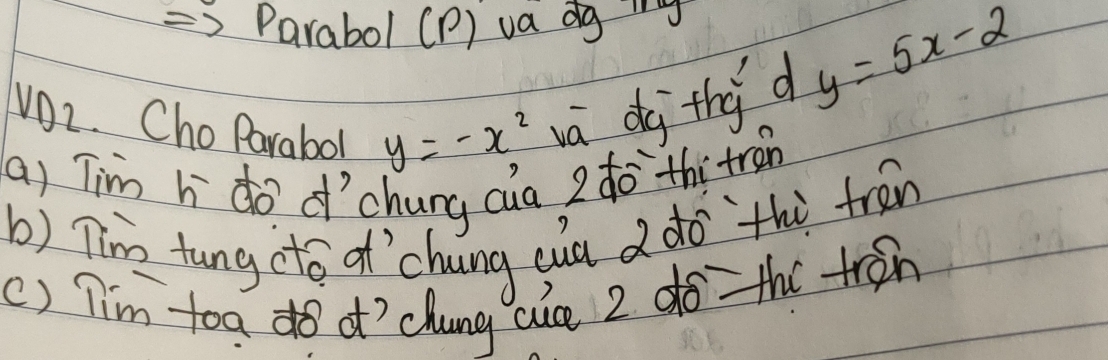 => Parabol (P) và đg
VD2. Cho Parabol y = -x² và đg thg d y = 5x-2
a) Tìm h đô đ' chung của 2 đồ thị trên
b) Tìm tung độ đ' chung của 2 đồ thị trên
c) Tìm toạ độ đ' chung của 2 đồ thị trên